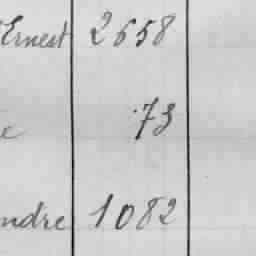 Ernest 2658
e 73
ndre 1082